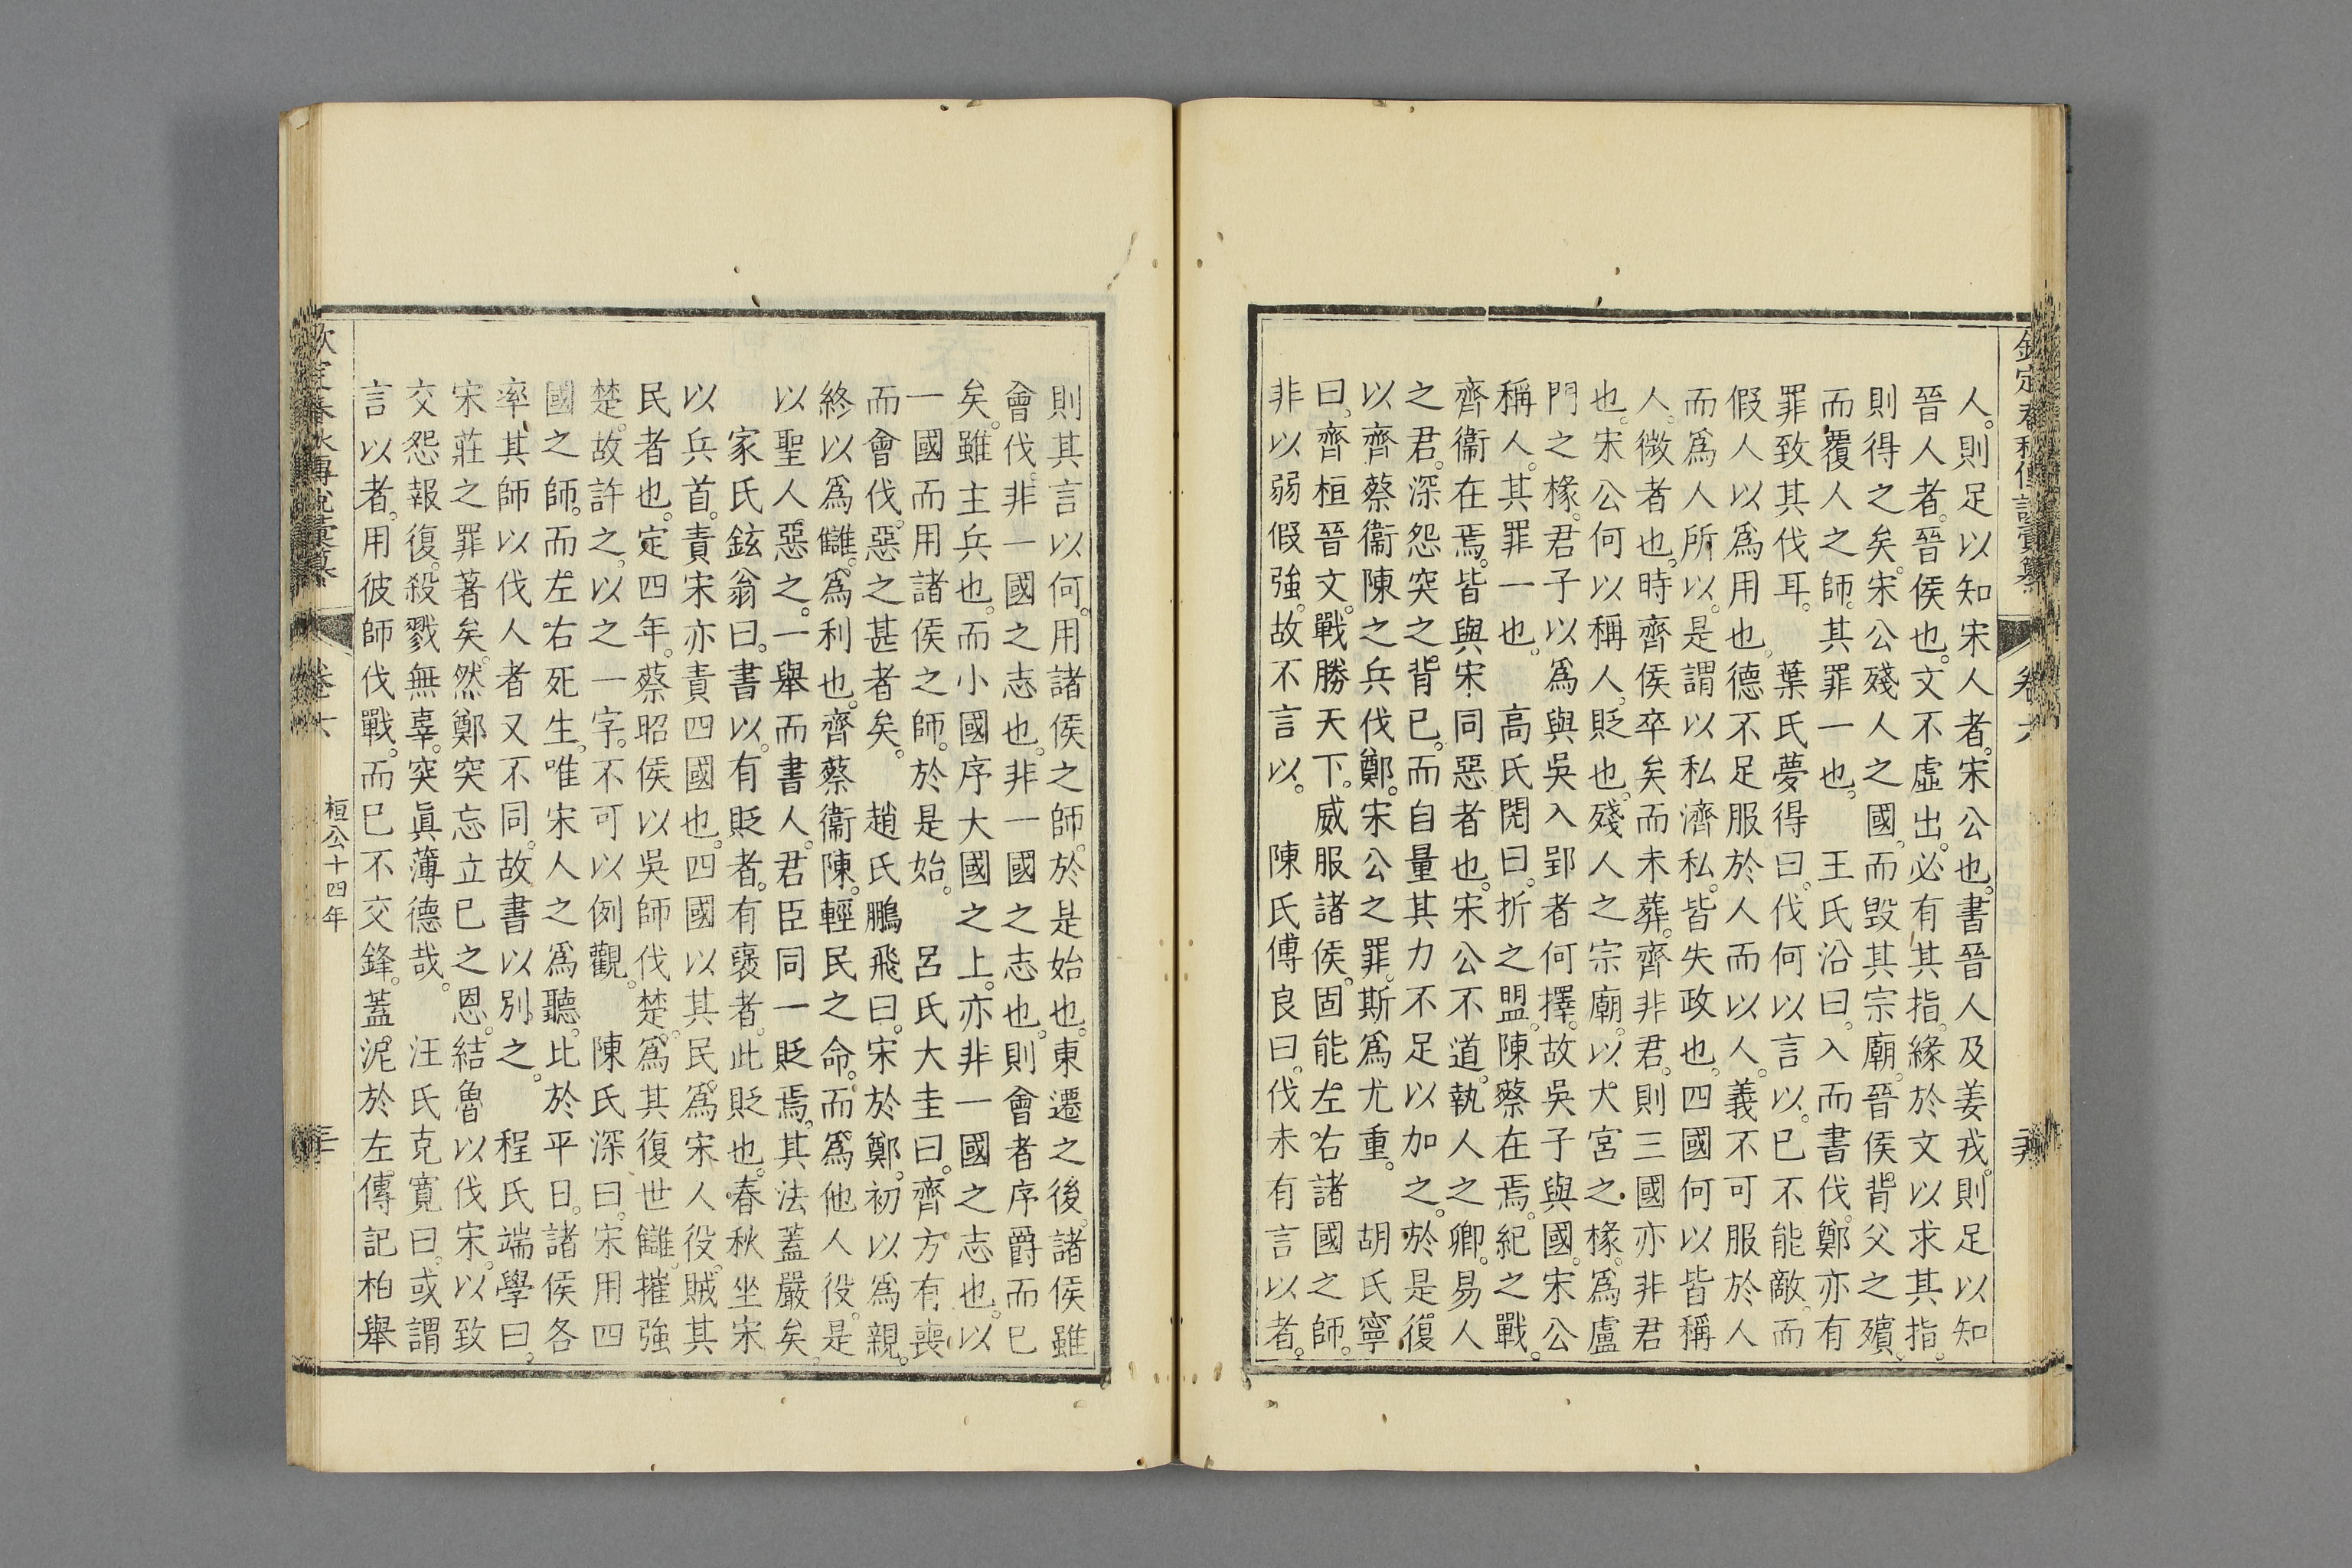 人。則足以知宋人者。宋公也。書晉人及姜戎。則足以知
晉人者。晉侯也。文不虛出。必有其指。緣於文以求其指。
則得之矣。宋公殘人之國。而毀其宗廟。晉侯背父之殯。
而覆人之師。其罪一也。 王氏沿曰。入而書伐。鄭亦有
罪致其伐耳。 葉氏夢得曰。伐何以言以。已不能敵。而
假人以爲用也。德不足服於人而以人。義不可服於人
而爲人所以。是謂以私濟私。皆失政也。四國何以皆稱
人。微者也。時齊侯卒矣而未葬。齊非君。則三國亦非君
也。宋公何以稱人。貶也。殘人之宗廟。以大宮之椽。爲盧
門之椽。君子以爲與吳入郢者何擇。故吳子與國。宋公
稱人。其罪一也。 高氏閌曰。折之盟。陳蔡在焉。紀之戰。
齊衞在焉。皆與宋同惡者也。宋公不道。執人之卿。易人
之君。深怨突之背已。而自量其力不足以加之。於是復
以齊蔡衞陳之兵伐鄭。宋公之罪。斯爲尤重。 胡氏寧
曰。齊桓晉文。戰勝天下。威服諸侯。固能左右諸國之師。
非以弱假強。故不言以。 陳氏傅良曰。伐未有言以者。
欽定春秋傳說彙纂 卷六
則其言以何。用諸侯之師。於是始也。東遷之後。諸侯雖
會伐。非一國之志也。非一國之志也。則會者序爵而已
矣。雖主兵也。而小國序大國之上。亦非一國之志也。以
一國而用諸侯之師。於是始。 呂氏大圭曰。齊方有喪
而會伐。惡之甚者矣。 趙氏鵬飛曰。宋於鄭。初以爲親。
終以爲讎。爲利也。齊蔡衞陳。輕民之命。而爲他人役。是
以聖人惡之。一舉而書人。君臣同一貶焉。其法蓋嚴矣。
家氏鉉翁曰。書以。有貶者。有襃者。此貶也。春秋坐宋
以兵首。責宋亦責四國也。四國以其民。爲宋人役。賊其
民者也。定四年。蔡昭侯以吳師伐楚。爲其復世讎。摧強
楚。故許之。以之一字。不可以例觀。 陳氏深曰。宋用四
國之師。而左右死生。唯宋人之爲聽。比於平日。諸侯各
率其師以伐人者又不同。故書以別之。 程氏端學曰。
宋莊之罪著矣。然鄭突忘立已之恩。結魯以伐宋。以致
交怨報復。殺戮無辜。突眞薄德哉。 汪氏克寬曰。或謂
言以者。用彼師伐戰。而已不交鋒。蓋泥於左傳記柏舉
欽定春秋傳說彙纂 卷六 桓公十四年